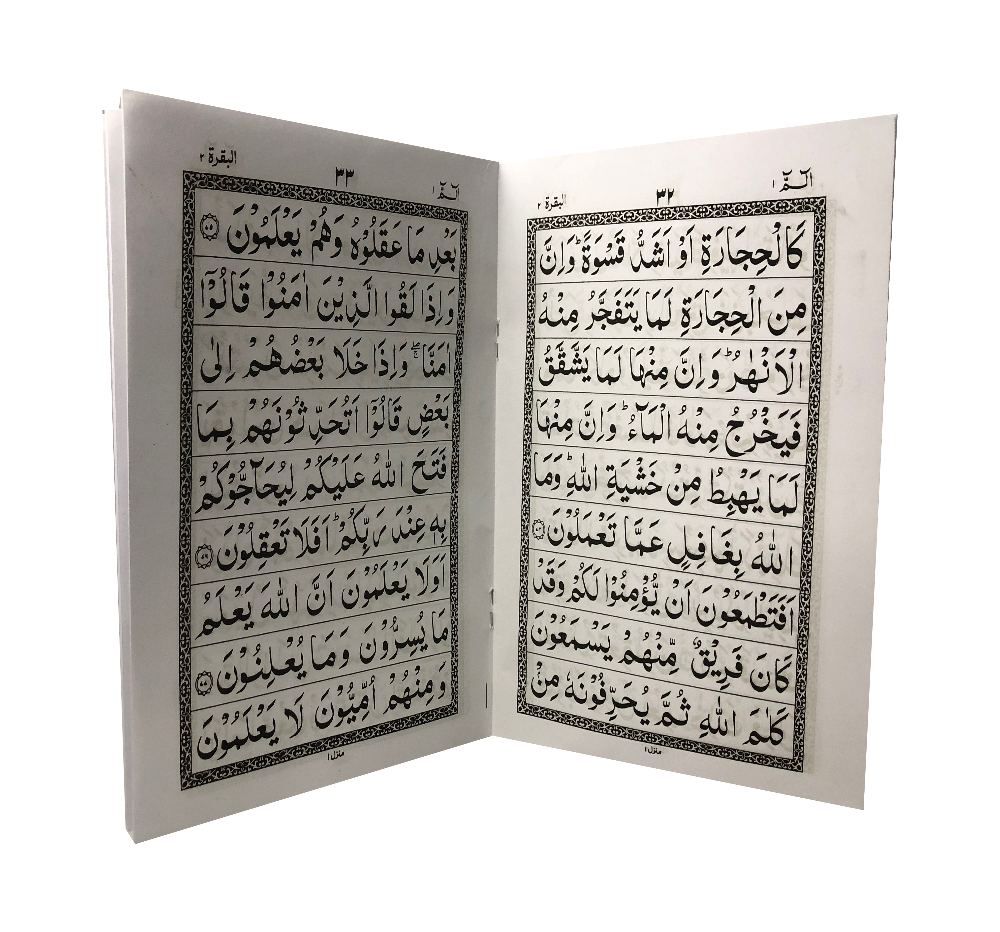 الٓـمّٓ ١
٣٢
البقرة ٢
كَالْحِجَارَةِ اَوْ اَشَدُّ قَسْوَةً ؕ وَاِنَّ
مِنَ الْحِجَارَةِ لَمَا يَتَفَجَّرُ مِنْهُ
الْاَنْهٰرُ ؕ وَاِنَّ مِنْهَا لَمَا يَشَّقَّقُ
فَيَخْرُجُ مِنْهُ الْمَآءُ ؕ وَاِنَّ مِنْهَا
لَمَا يَهْبِطُ مِنْ خَشْيَةِ اللّٰهِ ؕ وَمَا
اللّٰهُ بِغَافِلٍ عَمَّا تَعْمَلُوْنَ
اَفَتَطْمَعُوْنَ اَنْ يُّؤْمِنُوْا لَكُمْ وَقَدْ
كَانَ فَرِيْقٌ مِّنْهُمْ يَسْمَعُوْنَ
كَلٰمَ اللّٰهِ ثُمَّ يُحَرِّفُوْنَهٗ مِنْۢ
منزل ١
الٓـمّٓ ١
٣٣
البقرة ٢
بَعْدِ مَا عَقَلُوْهُ وَهُمْ يَعْلَمُوْنَ
وَاِذَا لَقُوا الَّذِيْنَ اٰمَنُوْا قَالُوْٓا
اٰمَنَّا ۖۚ وَاِذَا خَلَا بَعْضُهُمْ اِلٰى
بَعْضٍ قَالُوْٓا اَتُحَدِّثُوْنَهُمْ بِمَا
فَتَحَ اللّٰهُ عَلَيْكُمْ لِيُحَآجُّوْكُمْ
بِهٖ عِنْدَ رَبِّكُمْ ؕ اَفَلَا تَعْقِلُوْنَ
اَوَلَا يَعْلَمُوْنَ اَنَّ اللّٰهَ يَعْلَمُ
مَا يُسِرُّوْنَ وَمَا يُعْلِنُوْنَ
وَمِنْهُمْ اُمِّيُّوْنَ لَا يَعْلَمُوْنَ
منزل ١